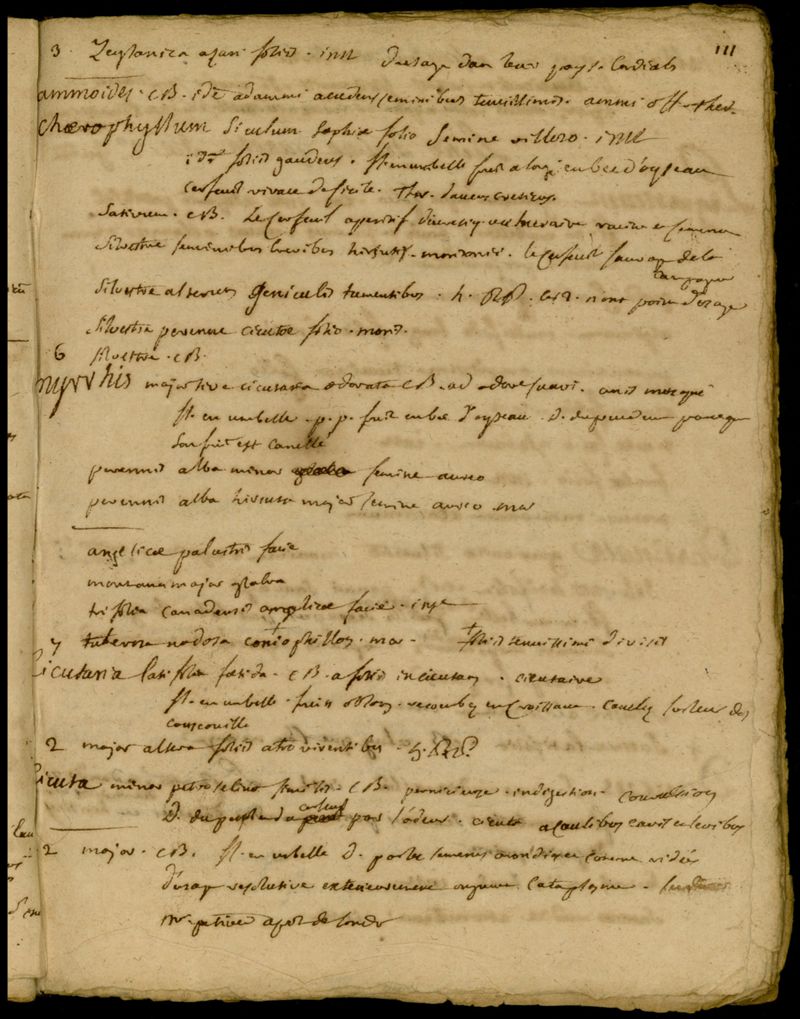 3. Zeylanica asari foliis. inst d'usage dans leur pays. Cordials
111
ammoides. CB. id est adammi accedens seminibus tenuissimis. ammi off. ther.
Chærophyllum Siculum Saphiæ folio Semine villoso. inst
foliis gaudens. fl. en umbelle fruit along en bec d'oyseau
Cerfeuil vivace de sicile. Ther. daucus creticus.
Sativum. CB. Le Cerfeuil aperitif diuretiq. vulneraire racine et semence
Silvestre seminibus brevibus hirsutis. le cerfeuil sauvage de la
campagne
Silvestre alterum geniculis tumentibus. h. RP. n'ont point d'usage
Silvestre perenne cicutæ folio. mor.
6 silvestre. CB.
myrrhis major sive cicutaria odorata CB. ad odore suavi. anis musqué
fl. en umbelle. p. p. fruit en bec d'oyseau. D. du precedent parceque
son fruit est canellé
perennis alba minor semine aureo
perennis alba hirsuta major semine aureo mor
angelicæ palustris facie
montana major glabra
trifolia canadensis angelicæ facie. inst
7 tuberosa nodosa coniophillon. mor. foliis tenuissime divisis
Cicutaria latifolia fœtida. CB. a foliis in cicutam. cicutaire
fl. en umbelle. fruits oblong. recourbez en Croissant. sur leur dos
2 major altera foliis atrovirentibus. h. RP
Cicuta minor petroselino similis. CB. pernicieuse. indigestion. convulsion
D. du persil par l'odeur. cicuta a caulibus cavis
2 major. CB. fl. en umbelle D. porte semences arondies et comme ridées
d'usag resolutive exterieurement onguent. Cataplasme.
mr. petiver apot. de londr